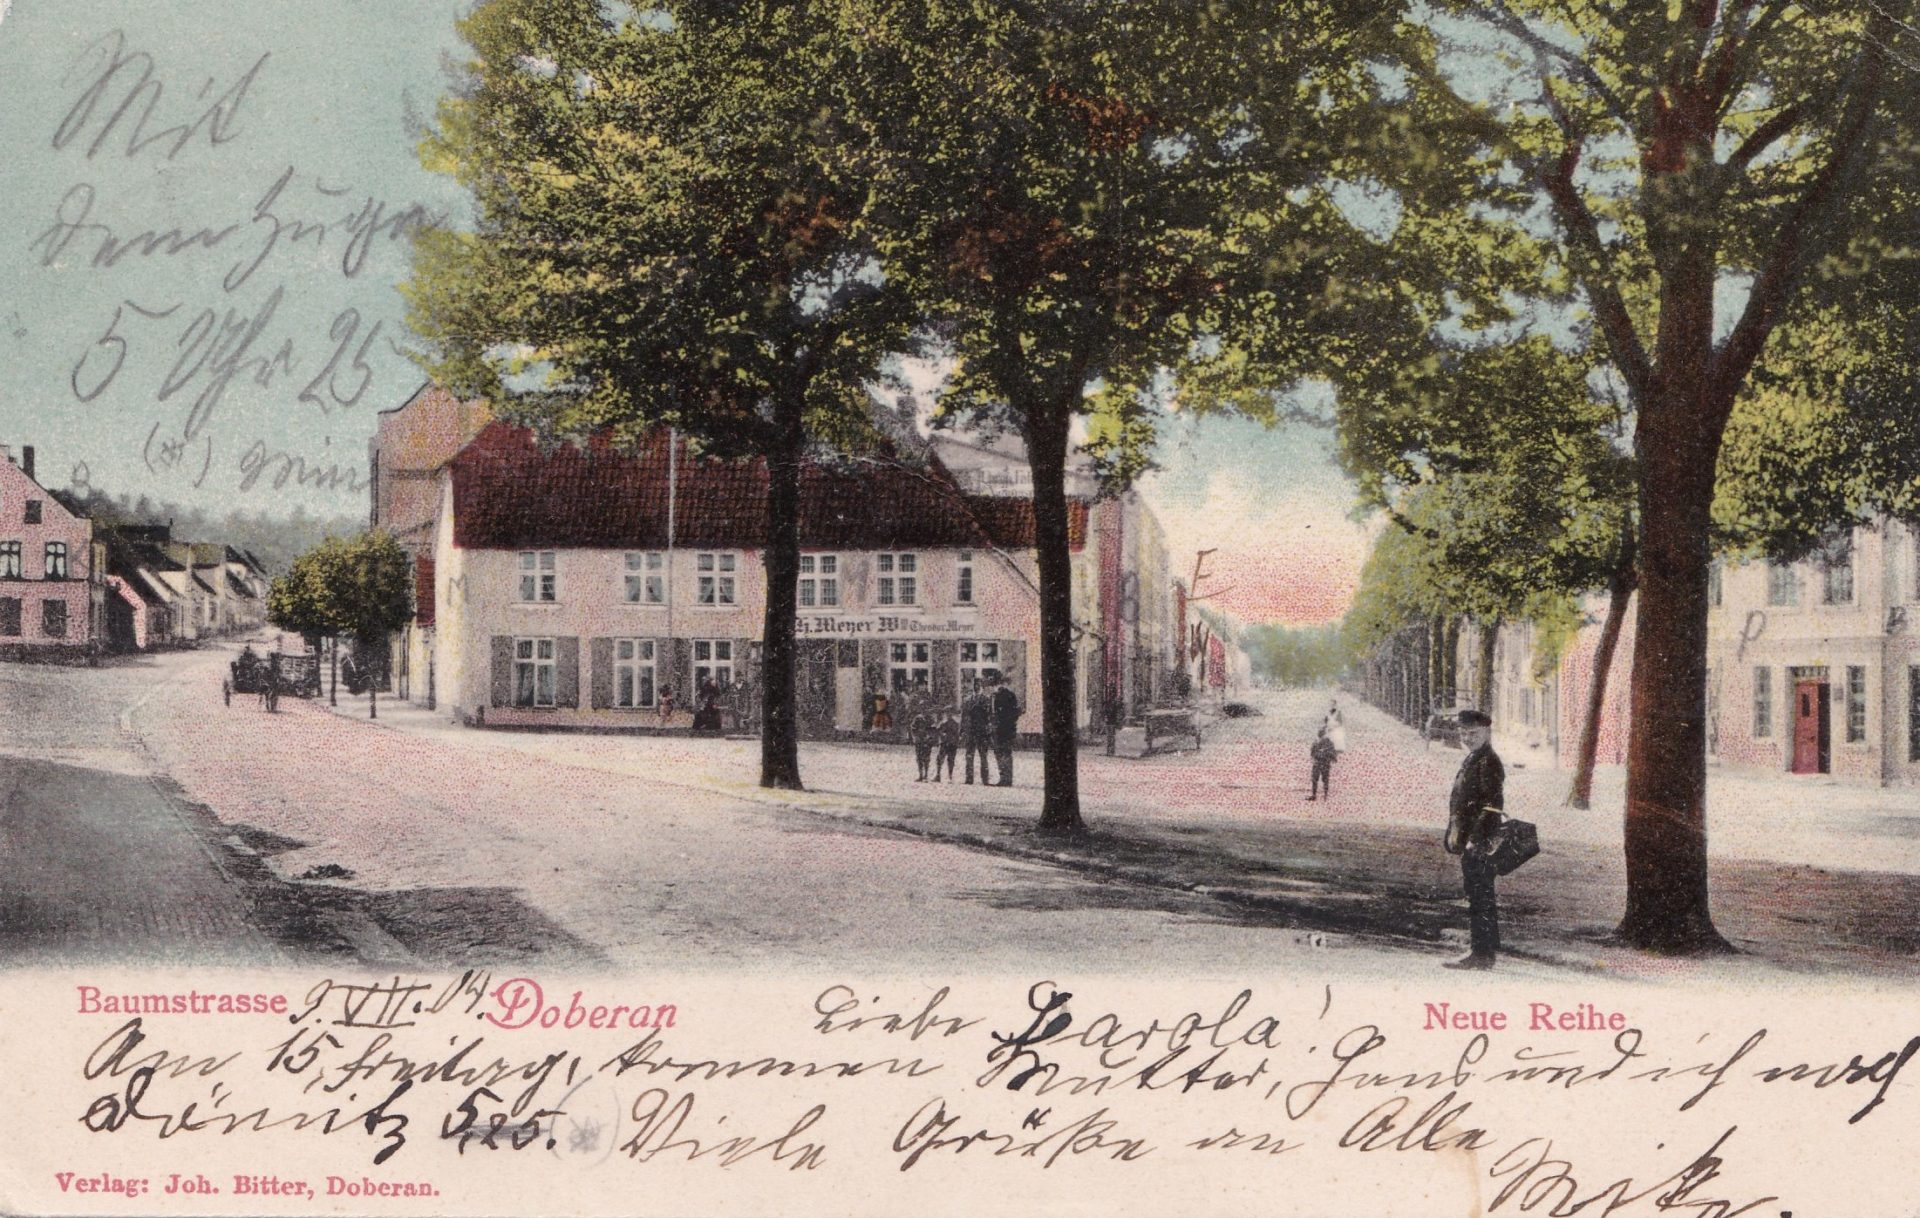 Mit
dem Zuge
5 Uhr 25
(*)
H. Meyer Ww Theodor Meyer
Baumstrasse 9. VII. 04. Doberan Liebe Carola! Neue Reihe
Am 15, Freitag, kommen Mutter, Hans und ich nach
Dömitz 5,25. (*) Viele Grüße an Alle
Verlag: Joh. Bitter, Doberan.